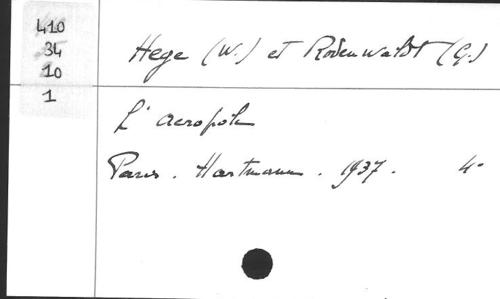 410
34
10
1
Hege (W.) et Rodenwaldt (G.)
L'acropole
Paris. Hartmann. 1937. 4°